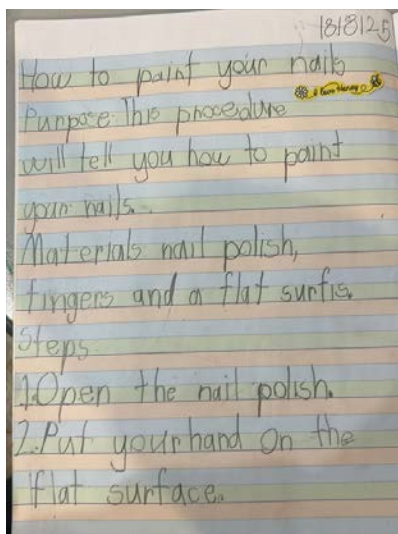 18/8/25
How to paint your nails
Purpose: This procedure
will tell you how to paint
your nails.
Materials nail polish,
fingers and a flat surfis.
Steps
1. Open the nail polish.
2. Put your hand on the
flat surface.